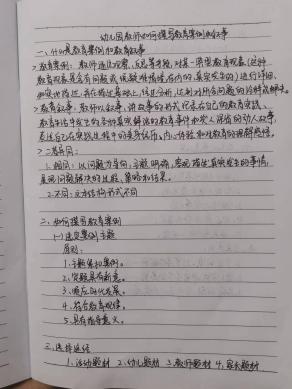 幼儿园教师如何撰写教育案例和叙事
一、什么是教育案例和教育叙事
> 教育案例：教师通过观察、反思等策略，对某一典型教育现象（这种
教育现象是含有问题或疑难情境在内的、真实发生的）进行详细、
和实地描述，并在描述基础上，经过分析，达到对所含问题的诠释及解决。
> 教育叙事：教师以叙事、讲故事的形式记录在自己的教育实践、
教育生活中发生的各种真实鲜活的教育事件和发人深省的动人故事，
表述自己在实践过程中的亲身经历、内心体验和对教育的理解感悟。
> 二者异同：
1.相同：以问题为导向，主题明确，客观描述真实发生的事情，
呈现问题解决的过程、策略和结果。
2.不同：文本结构形式不同
二、如何撰写教育案例
(一)选定案例主题
原则：
1.主题统领案例。
2.突显具有新意。
3.顺应时代发展。
4.符合教育规律。
5.具有指导意义。
三、选择途径
1.活动题材 2.幼儿题材 3.教师题材 4.家长题材